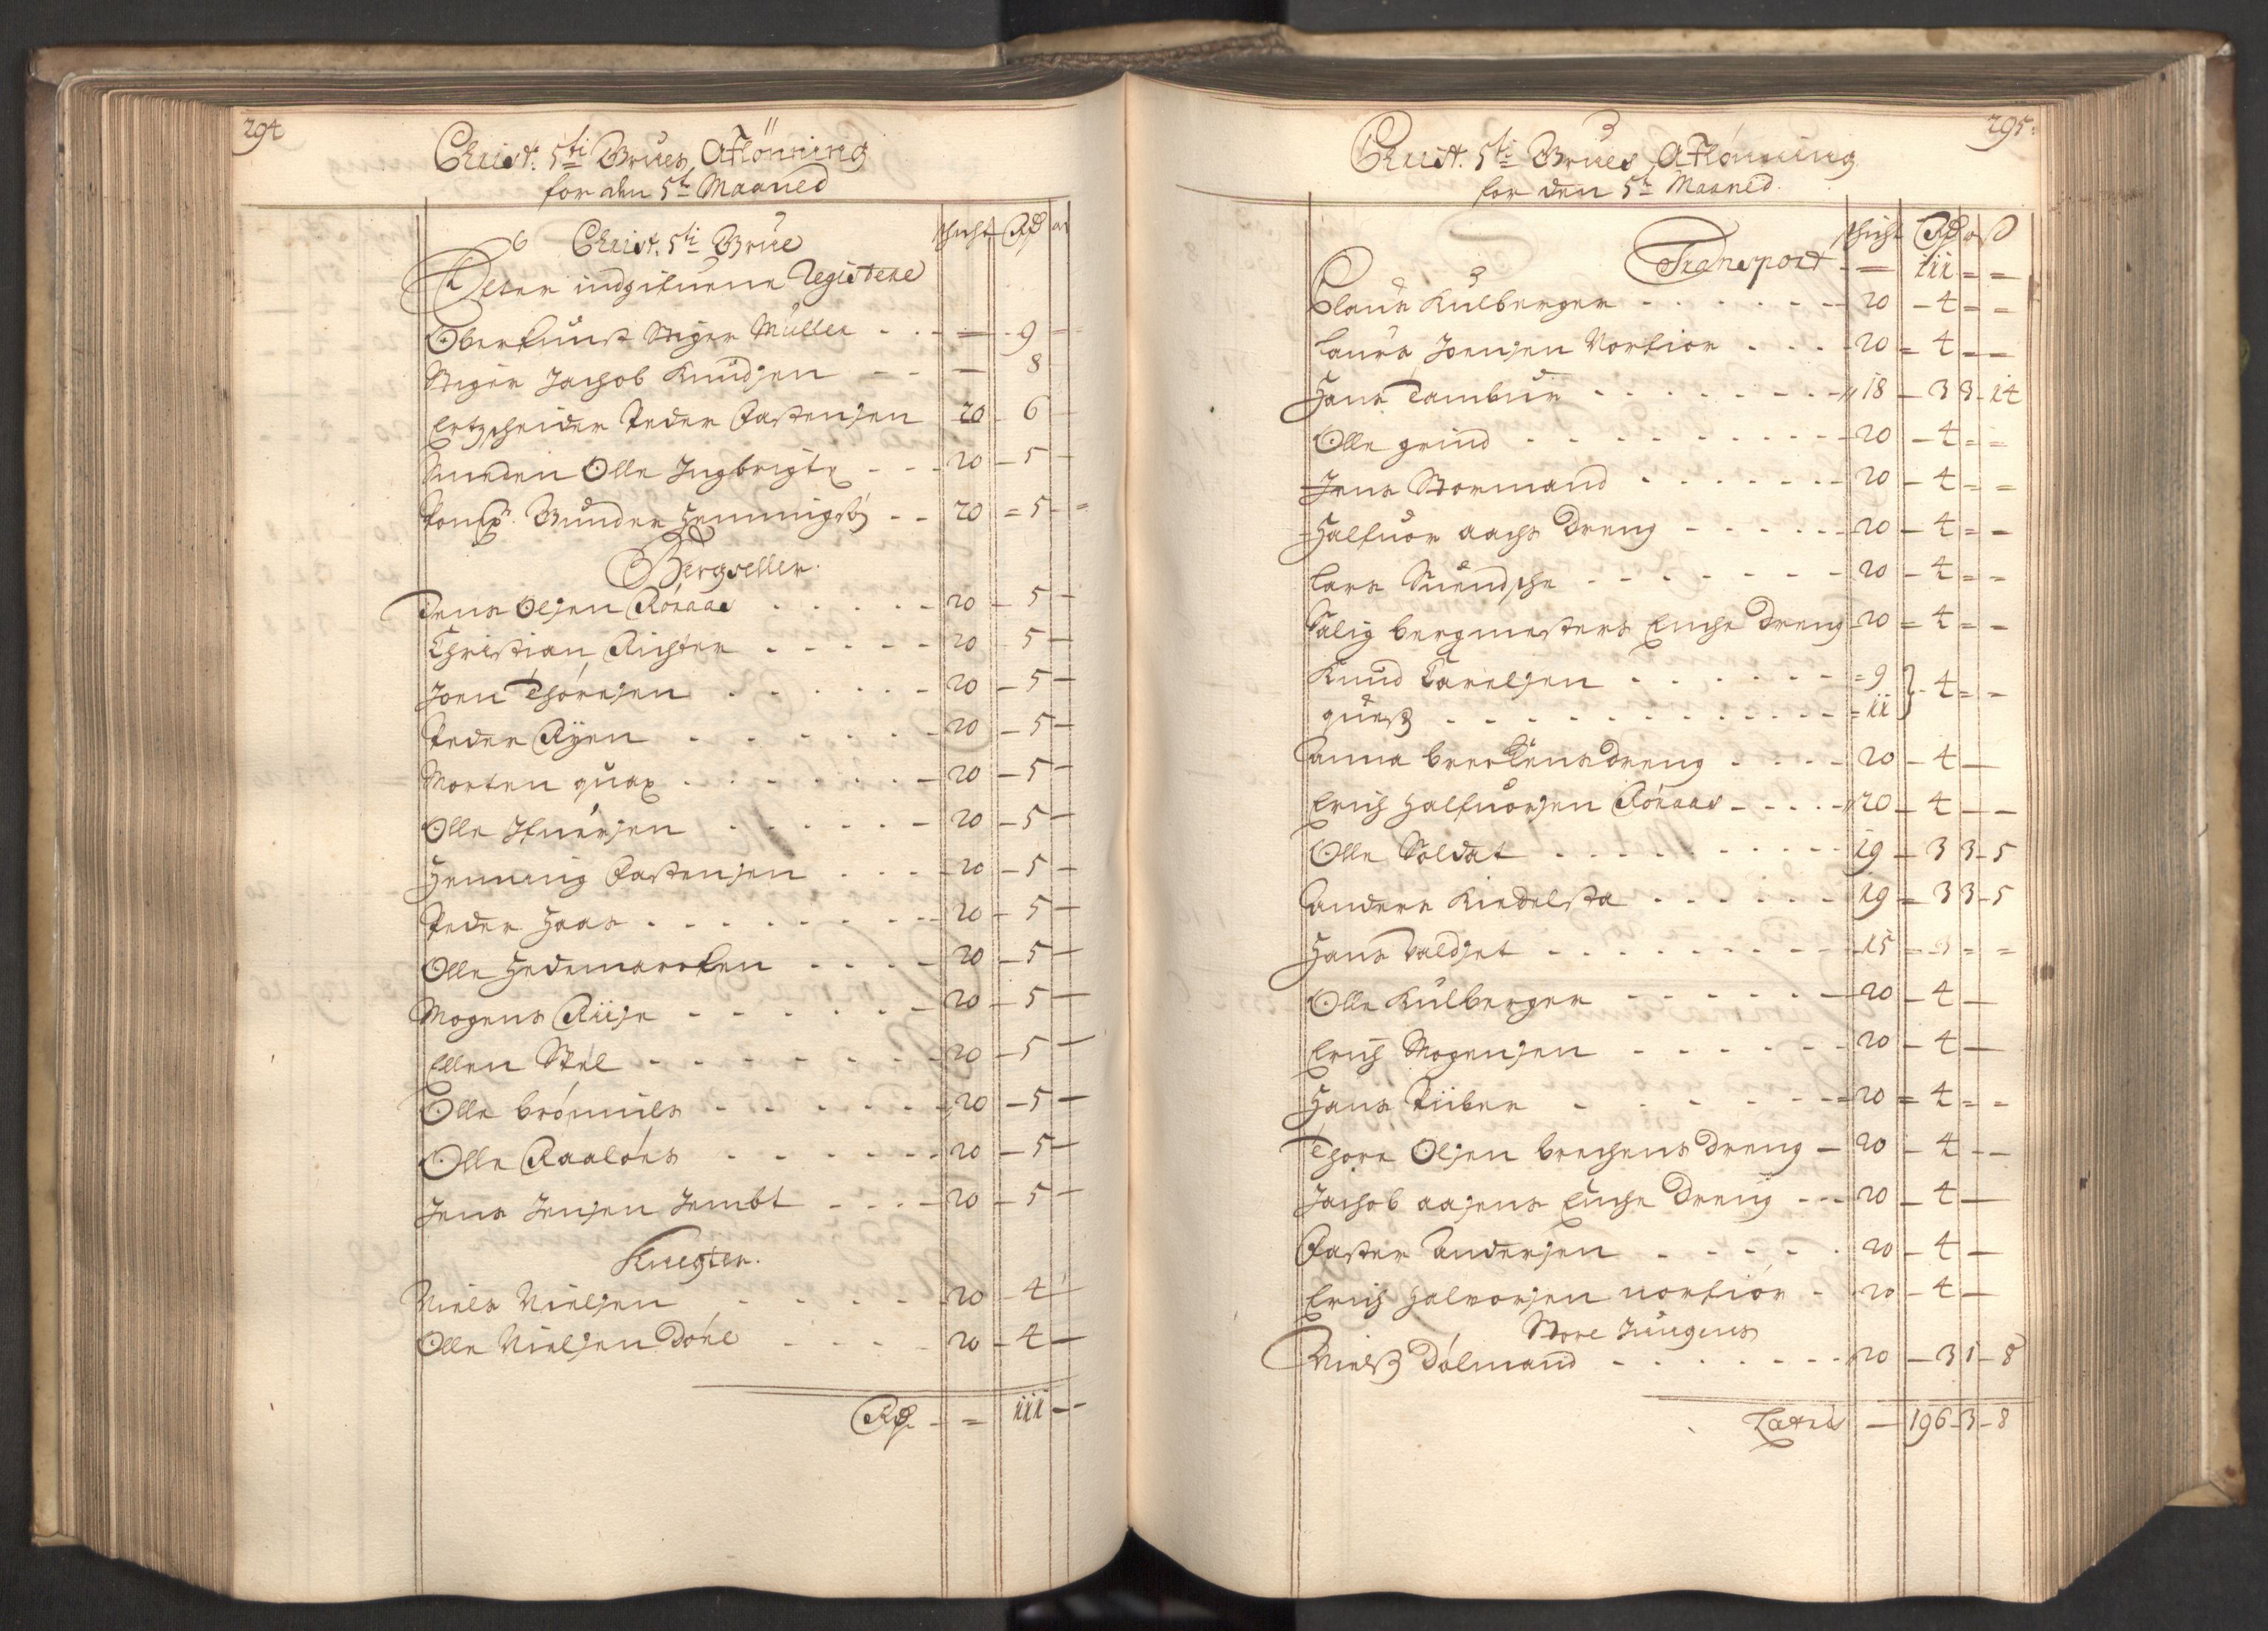 294
Christ: 5ti Grues Aflönning
for den 5te Maaned
Christ: 5ti Grue
schicht Rd
Efter indgifuene Registere
Oberkunst Stiger Müller - - - 9 -
Stiger Jachob Knudsen - - - 8
Ertzscheider Peder Fastensen 20 - 6 -
Smeden Olle Ingbrigtz - - - 20 - 5 -
Gunder Hemmingsø - - 20 = 5 - =
Bergseller.
Jens Olsen Röraas - - - - 20 - 5 -
Christian Richter - - - - - 20 5 -
Joen Thoresen - - - - - - 20 - 5 -
Peder Ryen - - - - - - 20 - 5 -
Morten quax - - - - - - - 20 - 5 -
Olle Ifuersen - - - - - - 20 - 5 -
Henning Fastensen - - - - 20 - 5 -
Peder Haas - - - - - - - - 20 - 5 -
Olle Hedemarken - - - - 20 - 5 -
Mogens Riise - - - - - - 20 - 5 -
Ellen Stål - - - - - - - - 20 - 5 -
Olle Brömüls - - - - - - 20 - 5 -
Olle Raaløes - - - - - - 20 - 5 -
Jens Jensen Jembt - - - - 20 - 5 -
Knegter.
Niels Nielsen - - - - - 20 - 4 -
Olle Nielsen Döhl - - - - 20 - 4 -
Rd - = 111 - -
295.
Christ: 5ti Grues Aflönning
for den 5te Maaned.
schicht Rd ort ß
Transport - - 111 = =
Claus Kulberger - - - - - - 20 - 4 = =
Laurs Joensen Norfior - - - 20 = 4 - -
Hans Tambur - - - - - - - 18 - 3 3 - 14
Olle grind - - - - - - - - 20 - 4 = =
Jens Stormand - - - - - - 20 - 4 = =
Halfuor aachs Dreng - - - - 20 - 4 = -
Lars Suendsche - - - - - - 20 - 4 = -
Salig bergmesters Enche Dreng 20 = 4 = -
Knud Carelsen - - - - - - = 9 } - 4 = -
- - - - - - - - - - = 11
Anna brechens Dreng - - - - 20 - 4 -
Erich Halfuorsen Röraas - - - - 20 - 4 - -
Olle Soldat - - - - - - - - 19 - 3 3 - 5
Anders Kiedelsta - - - - - - 19 = 3 3 - 5
Hans Valdset - - - - - - - - 15 - 3 = =
Olle Kulberger - - - - - - 20 - 4 -
Erich Mogensen - - - - - - 20 - 4 -
Hans Piiber - - - - - - - 20 = 4 = -
Thore Olsen brechens Dreng - 20 - 4 - -
Jachob aasens Enche Dreng - - 20 - 4 -
Faster Andersen - - - - - 20 - 4 -
Erich Halvorsen norfior - 20 - 4 -
Store Jungens
Nielß Dölmand - - - - - - - 20 - 3 1 - 8
Latus - 196 - 3 - 8